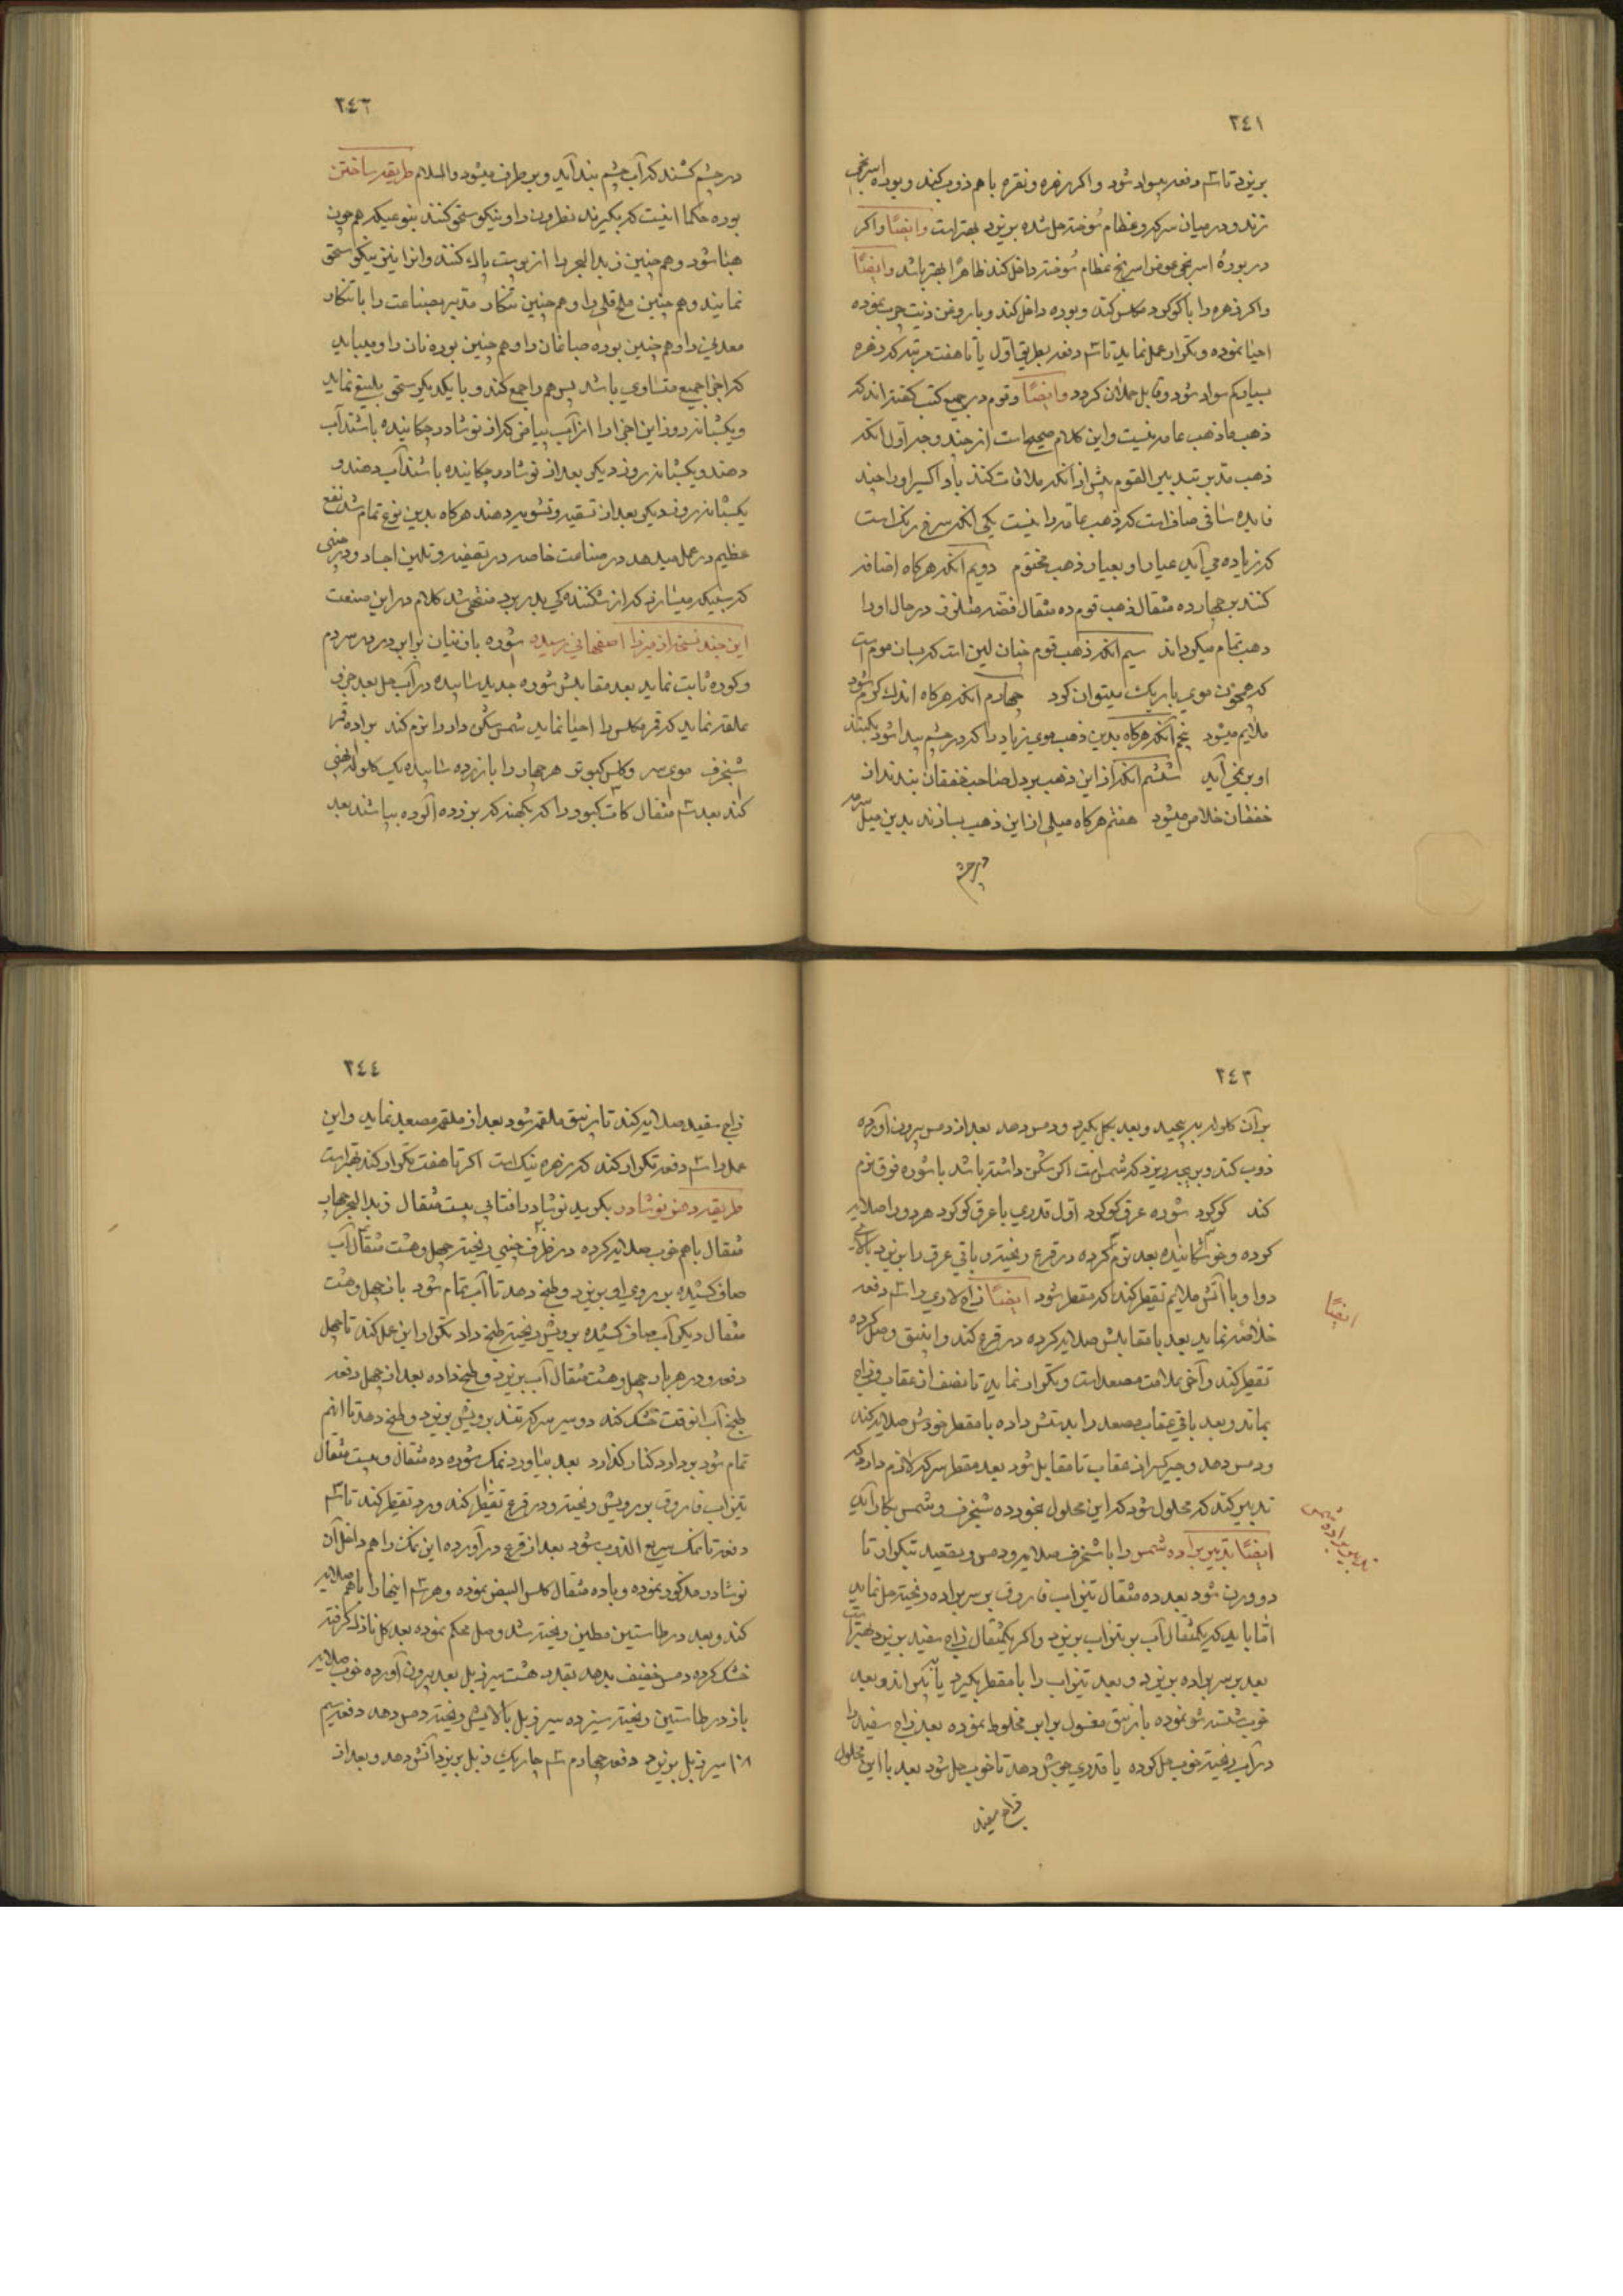 ٢٤١
بریزد تا سه دفعه سواد شود و اکر زهره و نقره با هم ذوب کنند و بوره اسرنجی
زند و در میان سرکه و عظام سوخته حل شده بریزد بهتر است وایضًا و اکر
در بورهٔ اسرنجی عوض اسرنج عظام سوخته داخل کند ظاهرًا بهتر باشد وایضًا
و اکر زهره را با کوکرد مکلس کند و بوره داخل کند و با روغن زیت چرب نموده
احیا نموده و تکرار عمل نماید تا سه دفعه بطریق اول یا تا هفت مرتبه که زهره
بسیار کم سواد شود و قابل حملان کردد وایضًا وقوم در جمیع کتب کفته اند که
ذهب ما ذهب عامه نیست و این کلام صحیح است از چند وجه اول آنکه
ذهب مدبر بتدبیر القوم پیش از آنکه ملاقات کنند با و اکسیر او را چند
فایده شافی صاف است که ذهب عامه را نیست یکی آنکه سرخ رنک است
که زیاده می آید عیار او بعیار ذهب مختوم دویم آنکه هرکاه اضافه
کنند بر چهارده مثقال ذهب قوم ده مثقال فضه متلزق در حال او را
ذهب تمام میکرداند سیم آنکه ذهب قوم چنان لین است که بسان موم است
که همچون موی باریک میتوان کرد چهارم آنکه هرکاه اندک کرم شود
ملایم میشود پنجم آنکه هرکاه بدین ذهب موی زیاد را که در چشم پیدا شود بکنند
او بر نمی آید ششم آنکه از این ذهب بر دل صاحب خفقان بندند از
خفقان خلاص میشود هفتم هرکاه میلی از این ذهب بسازند بدین میل سرمه
در چشم
٢٤٢
در چشم کشند که آب چشم بند آید و بر طرف میشود والسلام طریقه ساختن
بوره حکما اینست که بکیرند نطرون را و نیکو سحق کنند بنوعیکه هم چون
هبا شود و هم چنین زبد البحر را از پوست پاک کنند و انرا نیز نیکو سحق
نمایند و هم چنین ملح قلی را و هم چنین تنکار مدبر بصناعت را یا تنکار
معدنی را و هم چنین بوره صباغان را و هم چنین بوره نان را و میباید
که اجزا جمیع متساوی باشد پس همه را جمع کند و با یکدیکر سحق بلیغ نماید
و یکشبانه روز این اجزا را از آب بیاض که از نوشادر چکانیده باشند آب
دهند و یکشبانه روز دیکر بعد از نوشادر چکانیده باشند آب دهند و
یکشبانه روز دیکر بعد از تسقیه و تشویه دهند هرکاه بدین نوع تمام شد نفع
عظیم در عمل میدهد در صناعت خاصه در تصفیه و تلیین اجساد و در چینی
که بنیکه میسازند که از شکنندکی بدر برد منتهی شد کلام در این صنعت
این چند نسخه از میرزا اصفهانی رسیده شوره با زفیان برابر در در سردم
و کوره ثابت نماید بعد مقابلش شوره جدید سائیده در آب حل بعد جزو
ملغمه نماید که قمر مکلس را احیا نماید شمس شکن دار را نرم کند براده قمر
شنجرف موی سر و کلس کبوتر هر چهار را با زرده سائیده یک کلوله آهنی
کند بعد سه مثقال کات کبود را که بکهنه که بزرده آلوده بپاشند بعد
٢٤٣
بر آن کلوله بپیچد و بعد بکل بکیرد و دمس دهد بعد از دمس بیرون آورده
ذوب کند و بریچه ریزد که شمس است اکر شکن داشته باشد با شوره فوق نرم
کند کوکرد شوره عرق کوکرد اول قدری با عرق کوکرد هر دو را صلایه
کرده و خوشکانیده بعد نرم کرده در قرع ریخته و باقی عرق را بریزد بالای
دوا و با آتش ملایم تقطیر کند که مقطر شود ایضًا زاج لادری را سه دفعه
خلاصه نماید بعد با مقابلش صلایه کرده در قرع کند و انبیق وصل کرده
تقطیر کند و آخر علامت مصعد است و تکرار نماید تا نصف از عقاب و زاج
بماند و بعد باقی عقاب مصعد را بدستش داده با مقطر خودش صلایه کند
و دمس دهد و جبر کسر از عقاب تا مقابل شود بعد مقطر سرکه لازم دارد که
تدبیر کند که محلول شود که این محلول بخورده شنجرف و شمس بکار آید
ایضًا تدبیر براده شمس را با شنجرف صلایه و دمس و تصعید بتکرار تا
دو وزن شود بعد ده مثقال تیزاب فاروق بر سر براده ریخته حل نماید
اما باید که یکمثقال آب بر تیزاب بریزد و اکر یکمثقال زاج سفید بریزد بهتر است
بعد بر سر براده بریزد و بعد تیزاب را یا مقطر بکیرد یا بکیراند و بعد
خوب شسته شو نموده با زیبق مغسول برابر مخلوط نموده بعد زاج سفید را
در آب ریخته خوب حل کرده یا قدری جوش دهد تا خوب حل شود بعد با این محلول
زاج سفید
ایضًا
تدبیر براده شمس
٢٤٤
زاج سفید صلایه کند تا زیبق ملغمه شود بعد از ملغمه مصعد نماید و این
عمل را سه دفعه تکرار کند که زهره نیک است اکر تا هفت تکرار کند بهتر است
طریقه دهن نوشادر بکیرید نوشادر افتابی بیست مثقال زبد البحر چهار
مثقال با هم خوب صلایه کرده در ظرف چینی ریخته چهل و هشت مثقال آب
صاف کشیده بر روی او بریزد و طبخ دهد تا آب تمام شود باز چهل و هشت
مثقال دیکر آب صاف کشیده برویش ریخته طبخ داد تکرار این عمل کند تا چهل
دفعه و در هر بار چهل و هشت مثقال آب بریزد و طبخ داده بعد از چهل دفعه
طبخ آب انوقت خشک کند دو سیر سرکه تند برویش بریزد و طبخ دهد تا انهم
تمام شود بردارد کنار کذارد بعد بیاورد نمک شوره ده مثقال و بیست مثقال
تیزاب فاروق بر رویش ریخته و در قرع تقطیر کند و رد تقطیر کند تا سه
دفعه تا نمک سریع الذوب شود بعد از قرع در آورده این نمک را هم داخل آن
نوشادر مذکور نموده و با ده مثقال کلس البیض نموده و هر سه اینها را با هم صلایه
کند و بعد در طاستین مطین ریخته شد وصل محکم نموده بعد کل نازک کرفته
خشک کرده دمس خفیف بدهد بقدر هشت سیر زبل بعد بیرون آورده خوب صلایه
باز در طاستین ریخته سیزده سیر زبل بالایش ریخته دمس دهد دفعه سیم
١٨ سیر زبل بریزد دفعه چهارم سه چاریک زبل بریزد آتش دهد و بعد از